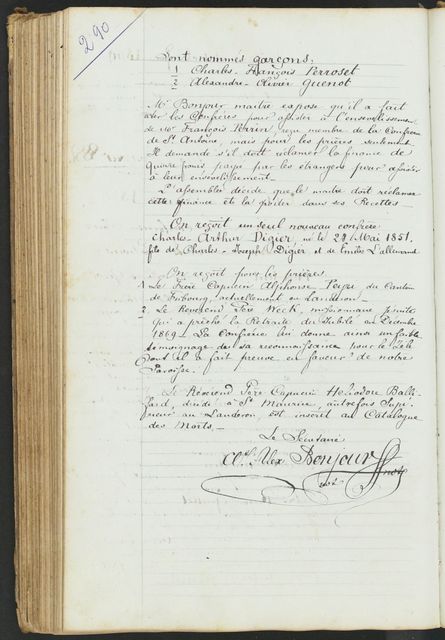 290
Sont nommés garçons.
1 Charles-François Perroset
2 Alexandre-Olivier Guenot
Mr Bonjour maître expose qu'il a fait
les Confrères pour assister à l'ensevelissement
de François Perrin reçu membre de la Confrérie
de St Antoine, mais pour les prières seulement
Il demande s'il doit réclamer la finance de
payé par les étrangers pour assister
à leur ensevelissement.
L'assemblée décide que le maître doit réclamer
cette finance et la porter dans ses Recettes.
On reçoit un seul nouveau confrère
Charles Arthur Digier né le 29 Mai 1851.
fils de Charles-Joseph Digier et de L'allemand.
On reçoit pour les prières
1 Le Frère Capucin Alphonse du Canton
de Fribourg, actuellement en Landeron.
2 Le Révérend Père Neck, missionnaire jésuite
qui a prêché la Retraite du Jubilé en Décembre
1869. La Confrérie lui donne ainsi un faible
témoignage de sa reconnaissance pour le zèle
dont il a fait preuve en faveur de notre
Paroisse.
Le Révérend Père Capucin Héliodore
décédé à St Maurice, autrefois Supé-
rieur au Landeron, est inscrit au Catalogue
des Morts.
Le Secrétaire
Alex Bonjour
not